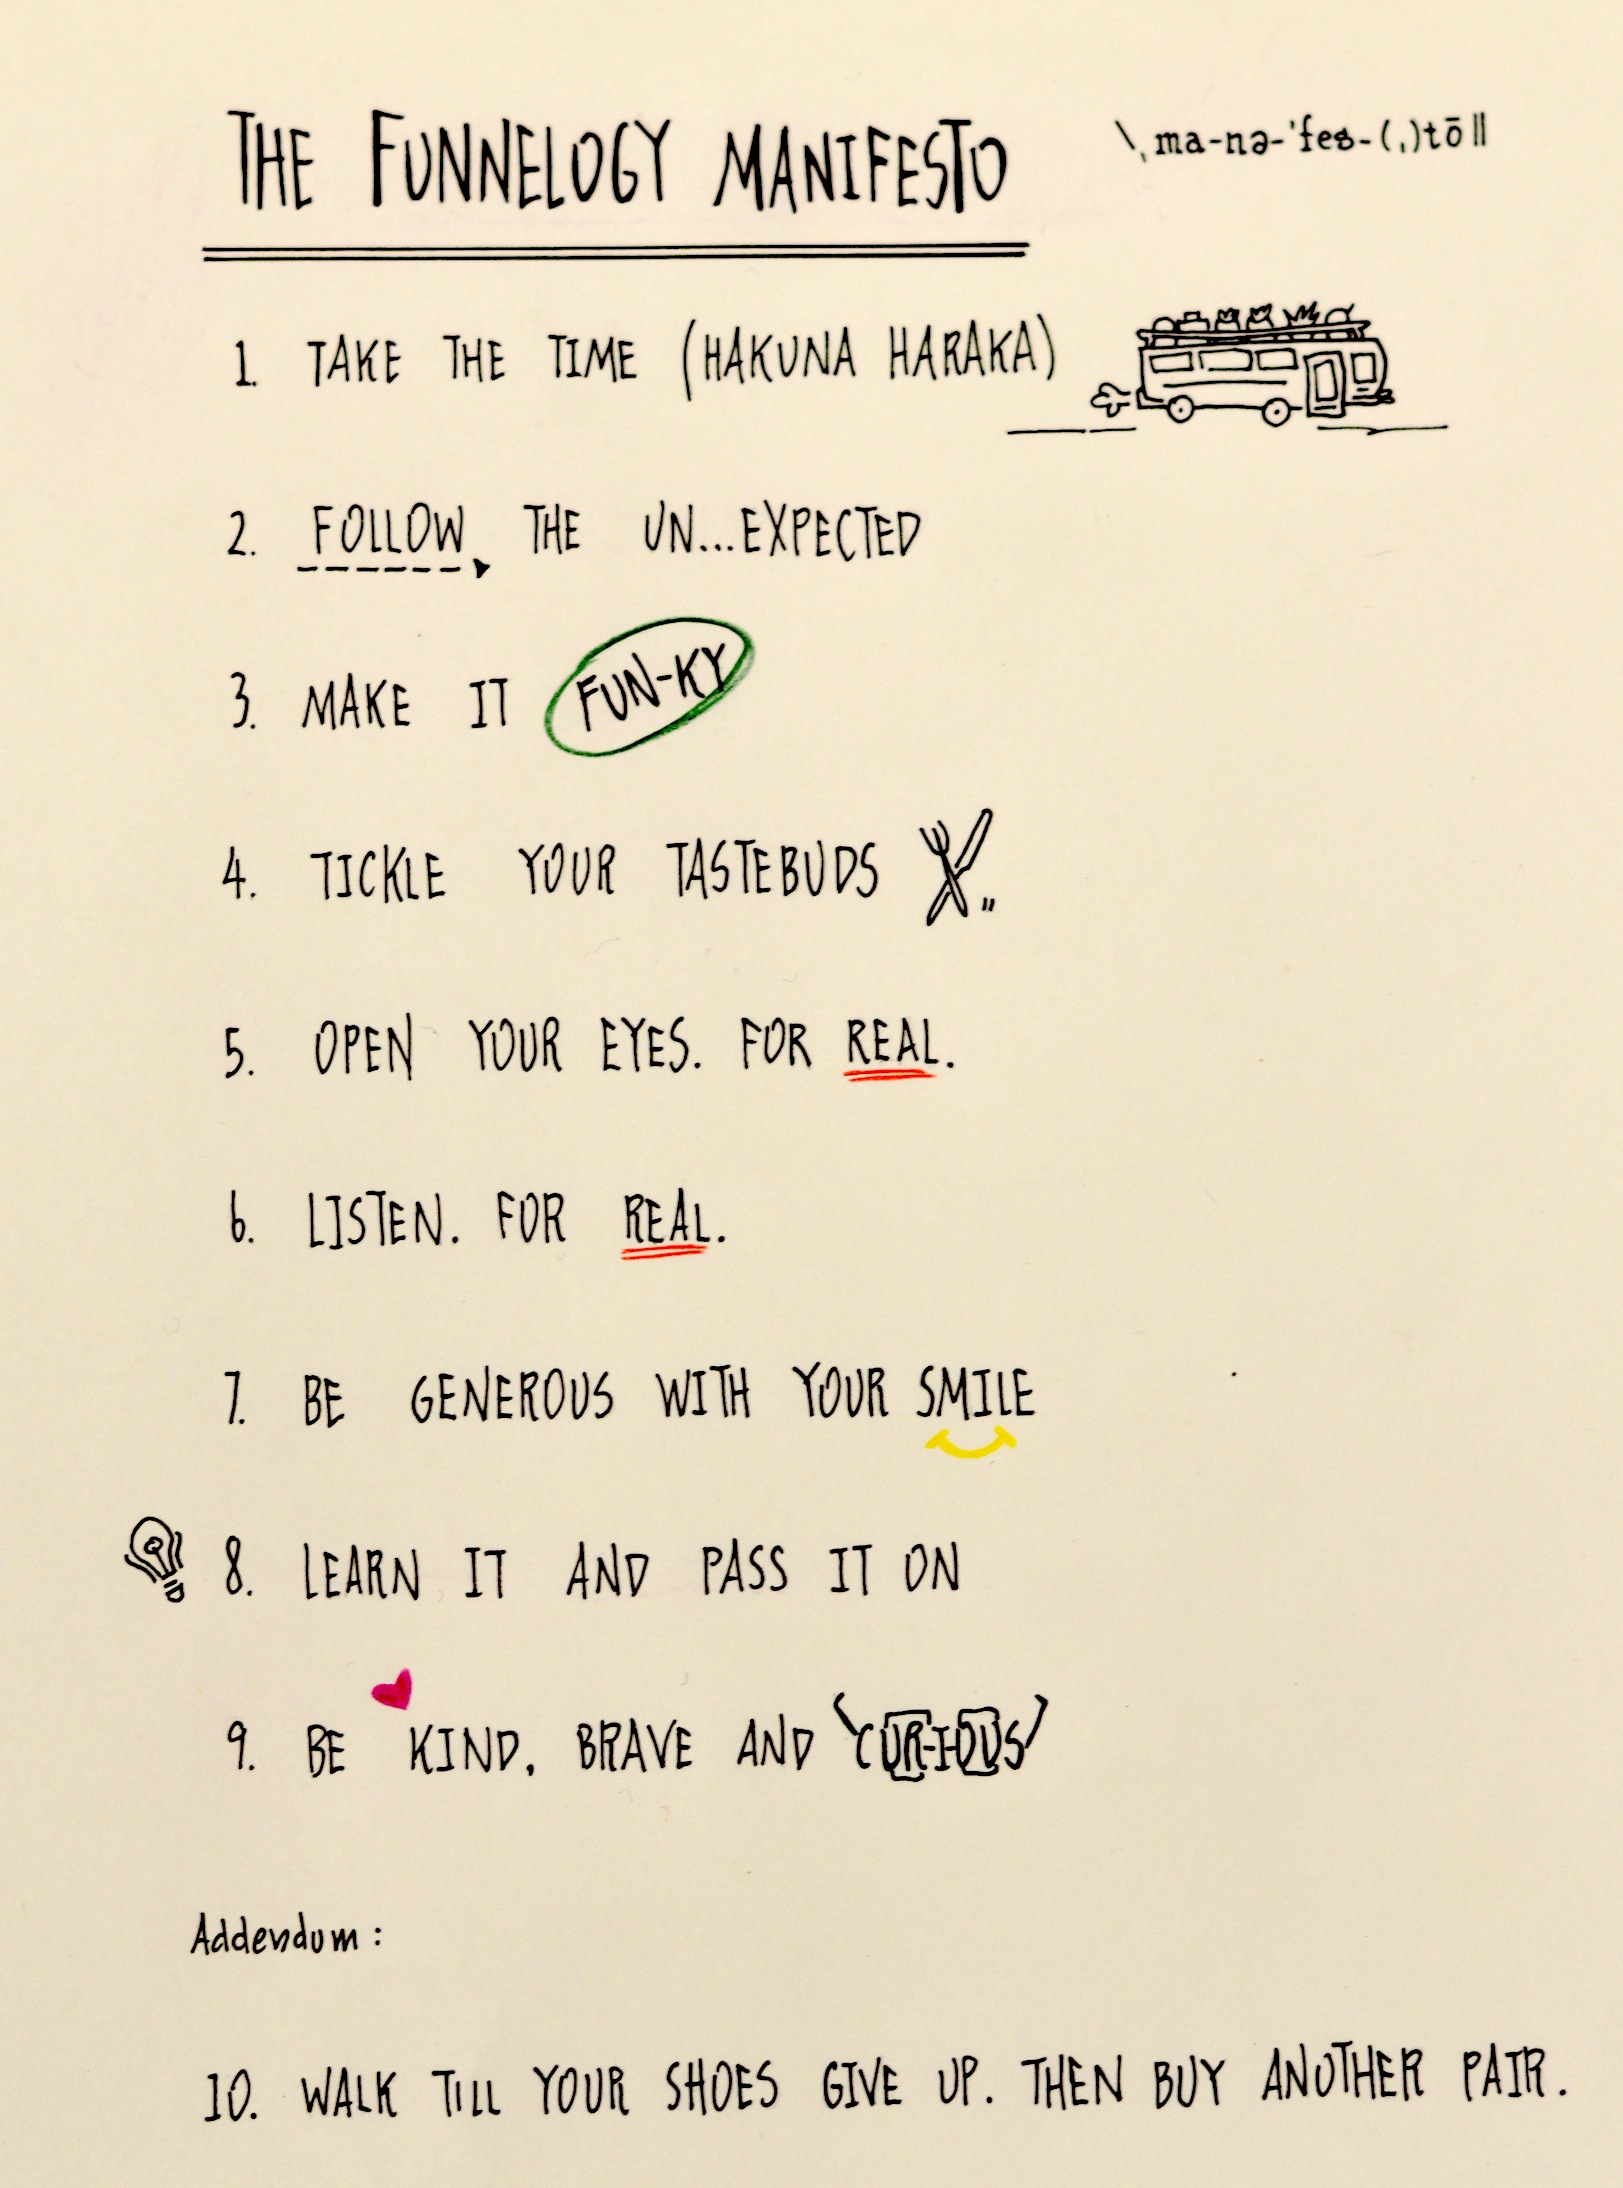 THE FUNNELOGY MANIFESTO \ˌma-nə-ˈfes-(ˌ)tō\\
1. TAKE THE TIME (HAKUNA HARAKA)
2. FOLLOW THE UN...EXPECTED
3. MAKE IT FUN-KY
4. TICKLE YOUR TASTEBUDS
5. OPEN YOUR EYES. FOR REAL.
6. LISTEN. FOR REAL.
7. BE GENEROUS WITH YOUR SMILE
8. LEARN IT AND PASS IT ON
9. BE KIND, BRAVE AND CURIOUS
Addendum:
10. WALK TILL YOUR SHOES GIVE UP. THEN BUY ANOTHER PAIR.